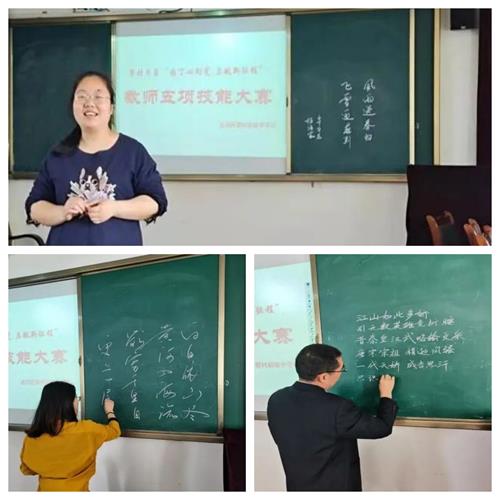 教师五项技能大赛
風雨送春归
飞雪迎春到
征程”
技能大赛
白日依山尽
黄河入海流
欲穷千里目
更上一
征程”
大赛
江山如此多娇
引无数英雄竞折腰
惜秦皇汉武 略输文采
唐宗宋祖 稍逊风骚
一代天骄 成吉思汗
只识